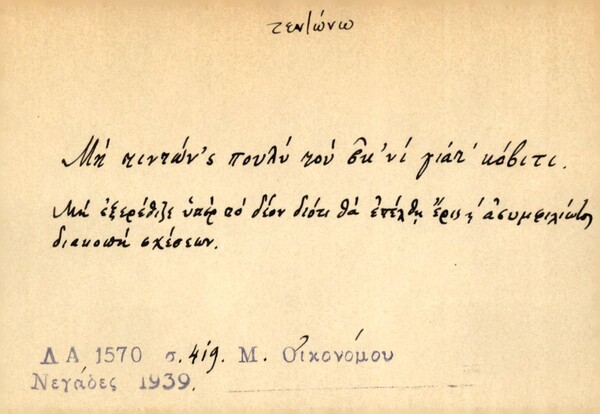 τεντώνω
Μή τεντών'ς πουλύ τού σκ'νί γιατ' κόβιτι.
Μή ἐξερέθιζε ὑπέρ τό δέον διότι θά ἐπέλθῃ ἔρις ἀσυμφιλίωτος
διακοπή σχέσεων.
Λ Α 1570 σ. 419. Μ. Οἰκονόμου
Νεγάδες 1939.